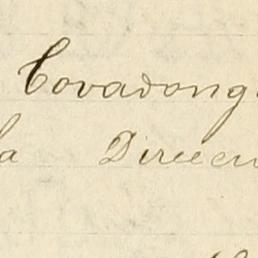 Covadong
la Direcci